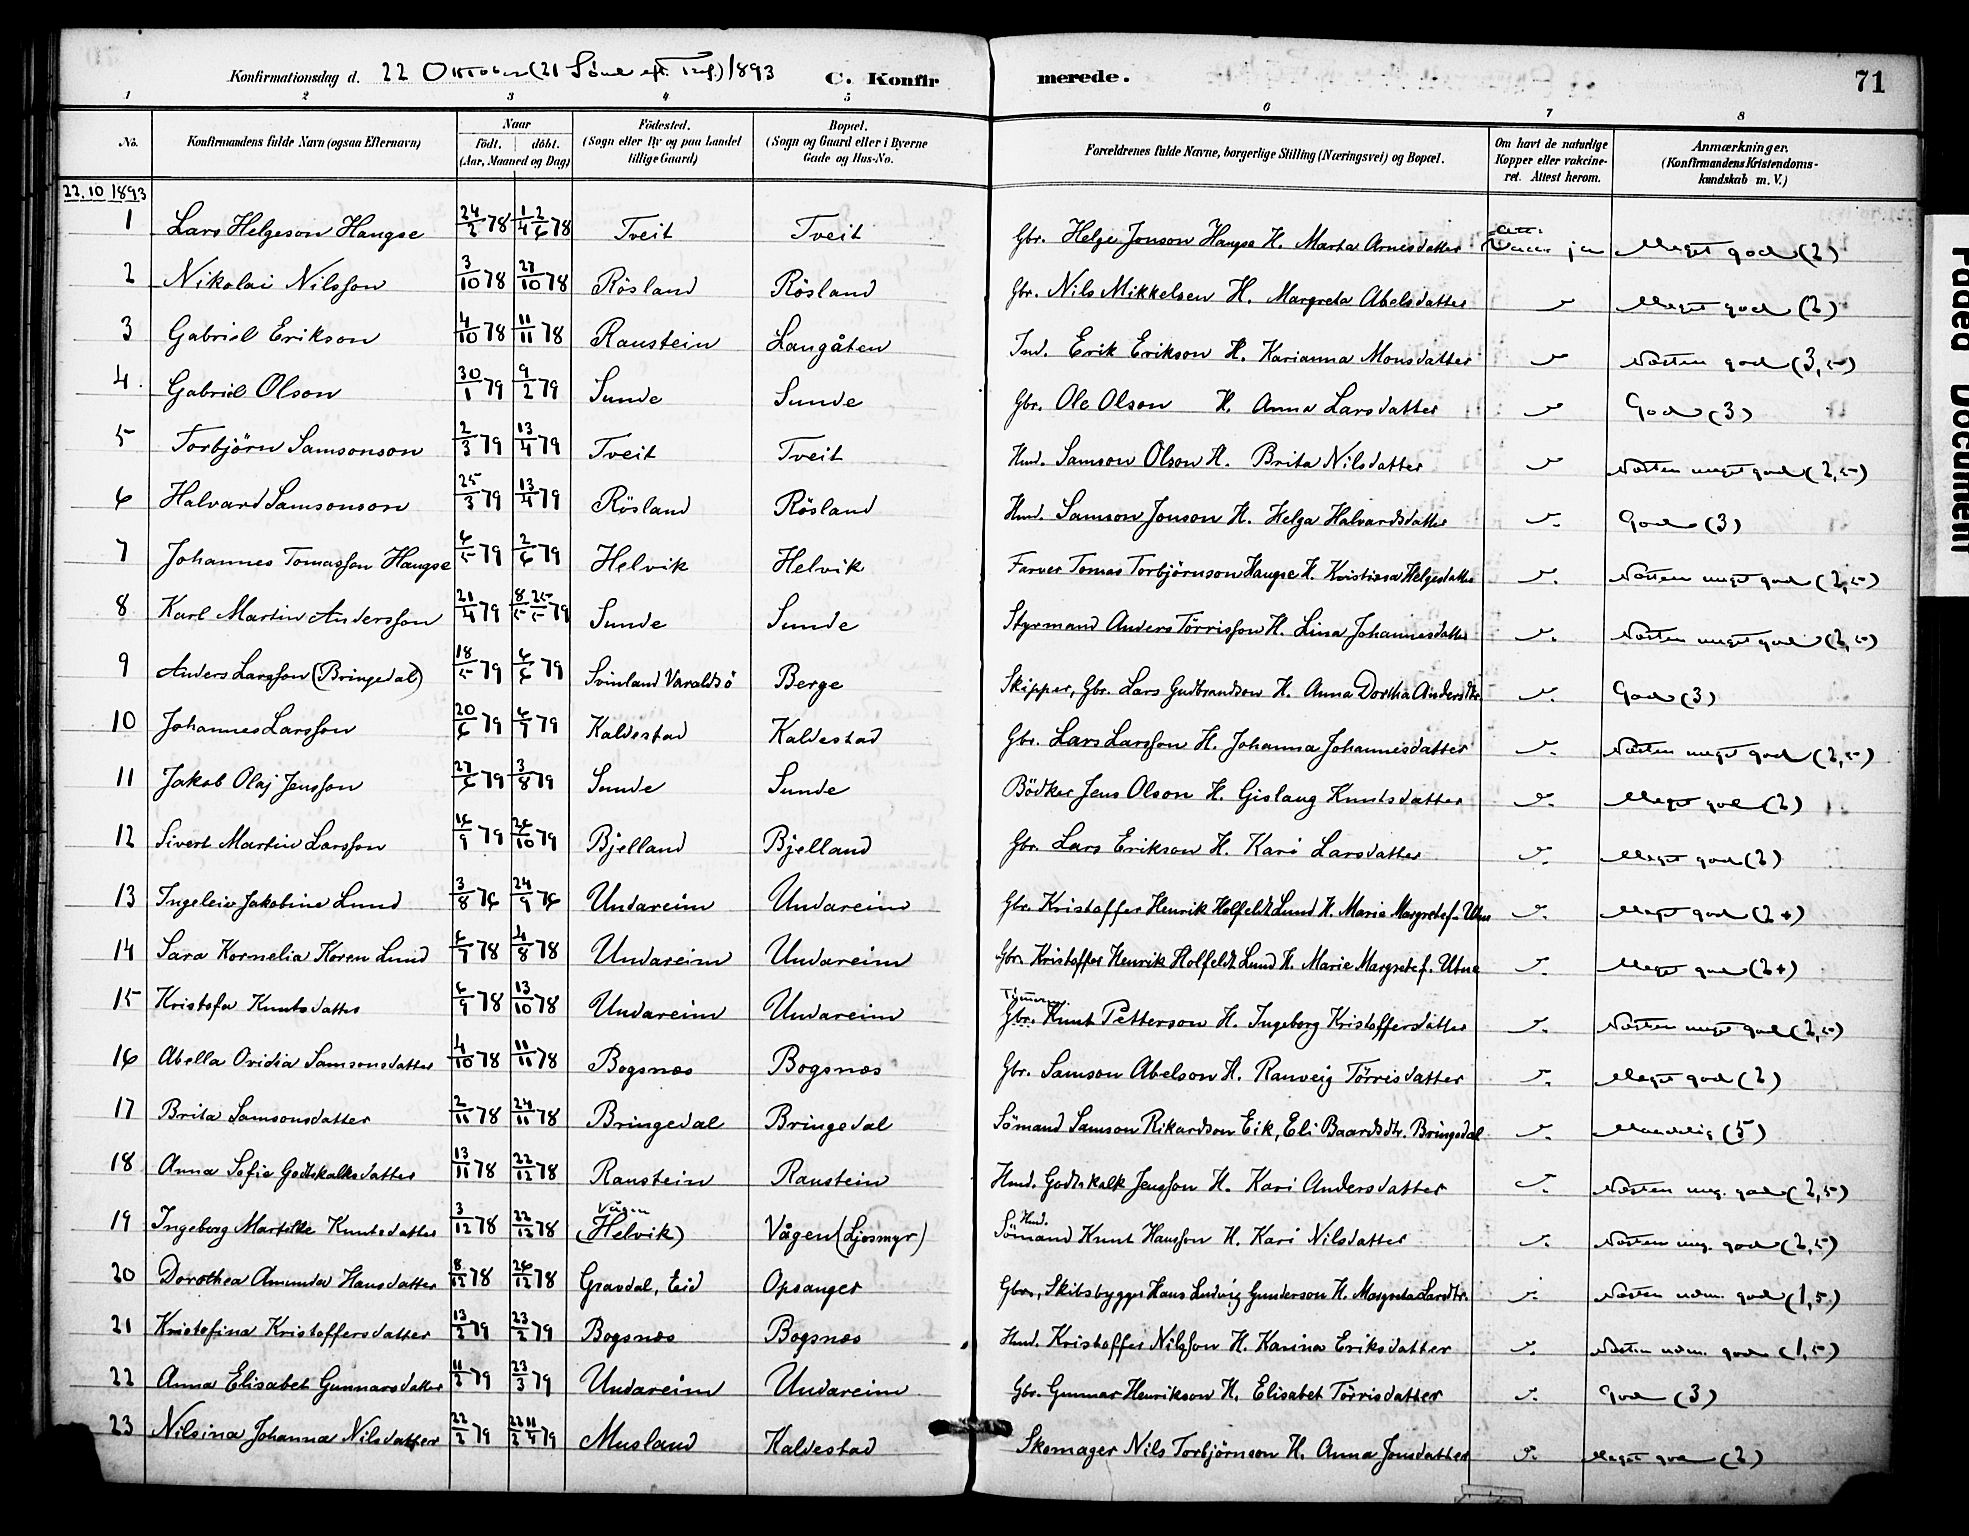 Konfirmationsdag d. 22 Oktober (21 Sönd eft. Tref.) 1893 C. Konfirmerede. 71
1 2 3 4 5 6 7 8
No. Konfirmandens fulde Navn (ogsaa Efternavn) Naar födt. döbt. (Aar, Maaned og Dag) Födested. (Sogn eller By og paa Landet tillige Gaard) Bopæl. (Sogn og Gaard eller i Byerne Gade og Hus-No. Forældrenes fulde Navne, borgerlige Stilling (Næringsvei) og Bopæl. Om havt de naturlige Kopper eller vakcineret. Attest herom. Anmærkninger. (Konfirmandens Kristendomskundskab m. V.)
22.10 1893
1 Lars Helgeson Haugse 24/2 78 1/4 2/6 78 Tveit Tveit Gbr. Helge Jonson Haugse H. Marta Arnesdatter ja Meget god (2)
2 Nikolai Nilsson 3/10 78 27/10 78 Rösland Rösland Gbr. Nils Mikkelsen H. Margreta Abelsdatter Meget god (2)
3 Gabriel Erikson 4/10 78 11/11 78 Raustein Langåten Ind. Erik Erikson H. Karianna Monsdatter Næsten god (3,5)
4. Gabriel Olson 30/1 79 9/2 79 Sunde Sunde Gbr. Ole Olson H. Anna Larsdatter God (3)
5 Torbjörn Samsonson 2/3 79 13/4 79 Tveit Tveit Hmd. Samson Olson H. Brita Nilsdatter Næsten meget god (2,5)
6 Halvard Samsonson 25/3 79 13/4 79 Rösland Rösland Hmd. Samson Jonson H. Helga Halvardsdatter God (3)
7 Johannes Tomasson Haugse 6/5 79 2/6 79 Helvik Helvik Farver Tomas Torbjörnson Haugse H. Kristiana Helgesdatter Næsten meget god (2,5)
8 Karl Martin Andersson 21/4 79 8/5 25/5 79 Sunde Sunde Styrmand Anders Törrisson H. Lina Johannesdatter Næsten meget god (2,5)
9 Anders Larsson (Bringedal) 18/5 79 6/6 79 Svinland Varaldsö Berge Skipper, Gbr. Lars Gudbrandson H. Anna Dorthea Andersdtr. God (3)
10 Johannes Larsson 20/6 79 6/7 79 Kaldestad Kaldestad Gbr. Lars Larsson H. Johanna Johannesdatter Næsten meget god (2,5)
11 Jakob Olaj Jensson 27/6 79 3/8 79 Sunde Sunde Bödker Jens Olson H. Gislaug Knutsdatter Meget god (2)
12 Sivert Martin Larsson 16/9 79 26/10 79 Bjelland Bjelland Gbr. Lars Erikson H. Kari Larsdatter Meget god (2)
13 Ingeleiv Jakobine Lund 3/8 76 24/9 76 Undareim Undareim Gbr. Kristoffer Henrik Holfeldt Lund H. Marie Margrete f. Utne Meget god (2+)
14 Sara Kornelia Koren Lund 6/7 78 4/8 78 Undareim Undareim Gbr. Kristoffer Henrik Holfeldt Lund H. Marie Margrete f. Utne Meget god (2+)
15 Kristofa Knutsdatter 6/9 78 13/10 78 Undareim Undareim Gbr. Knut Petterson H. Ingeborg Kristoffersdatter Næsten meget god (2,5)
16 Abella Ovidia Samsonsdatter 4/10 78 11/11 78 Bogsnæs Bogsnæs Gbr. Samson Abelson H. Ranveig Törrisdatter Meget god (2)
17 Brita Samsonsdatter 2/11 78 24/11 78 Bringedal Bringedal Sömand Samson Rikardson Eik, Eli Baardsdtr. Bringedal Maadelig (5)
18 Anna Sofie Godtskalksdatter 13/11 78 22/12 78 Raustein Raustein Hmd. Godtskalk Jensson H. Kari Andersdatter Næsten meg. god (2,5)
19 Ingeborg Martille Knutsdatter 3/12 78 22/12 78 Vågen (Helvik) Vågen (Ljosmyr) Hmd. Sömand Knut Hansson H. Kari Nilsdatter Næsten meg. god (2,5)
20 Dorothea Amunda Hansdatter 8/12 78 26/12 78 Gravdal, Eid Opsanger Gbr., Skibsbygger Hans Ludvig Gunderson H. Margreta Larsdtr. Næsten udm. god (1,5)
21 Kristofina Kristoffersdatter 13/2 79 23/2 79 Bogsnæs Bogsnæs Hmd. Kristoffer Nilsson H. Karina Eriksdatter Næsten udm. god (1,5)
22 Anna Elisabet Gunnarsdatter 11/2 79 23/3 79 Undareim Undareim Gbr. Gunnar Henrikson H. Elisabet Törrisdatter God (3)
23 Nilsina Johanna Nilsdatter 22/2 79 22/2 11/4 79 Musland Kaldestad Skomager Nils Torbjörnson H. Anna Jonsdatter Meget god (2)